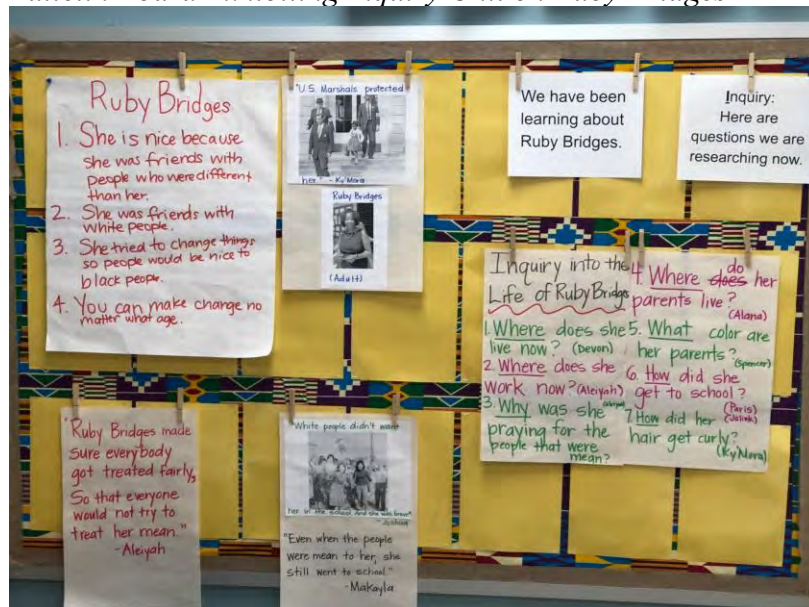 Ruby Bridges
1. She is nice because
she was friends with
people who were different
than her.
2. She was friends with
white people.
3. She tried to change things
so people would be nice to
black people.
4. You can make change no
matter what age.
"U.S. Marshals protected
her." - Ky'Mora
Ruby Bridges
(Adult)
We have been
learning about
Ruby Bridges.
Inquiry:
Here are
questions we are
researching now.
Inquiry into the
Life of Ruby Bridges
1. Where does she
live now? (Devon)
2. Where does she
work now? (Aleiyah)
3. Why was she
praying for the
people that were
mean?
do
4. Where does her
parents live?
(Alana)
5. What color are
her parents?
(Spencer)
6. How did she
get to school?
(Paris)
7. How did her
hair get curly?
(Ky'Mora)
"Ruby Bridges made
sure everybody
got treated fairly,
So that everyone
would not try to
treat her mean."
-Aleiyah
"White people didn't want
her in the school. And she was brave."
- Joshua
"Even when the people
were mean to her, she
still went to school."
-Makayla